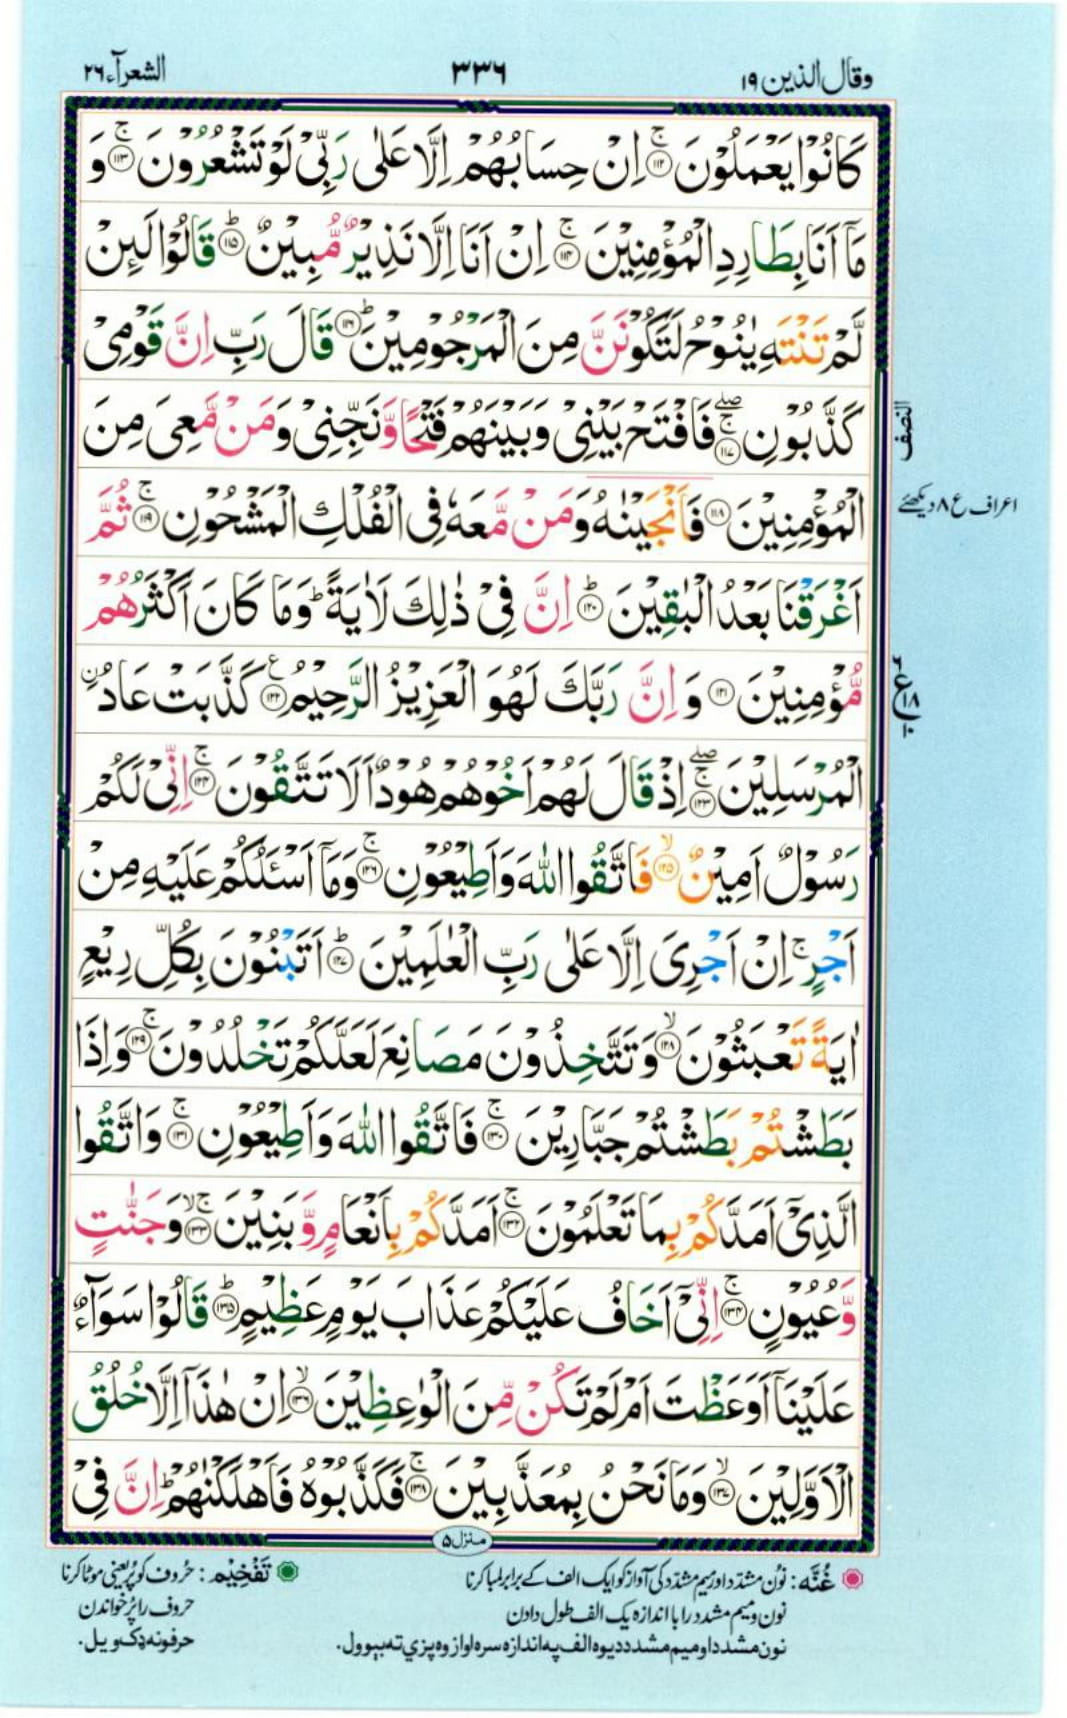 وقال الذين ١٩
٣٣٦
الشعرآء ٢٦
كَانُوْا يَعْمَلُوْنَ ۚ﴿۱۱۲﴾ اِنْ حِسَابُهُمْ اِلَّا عَلٰى رَبِّىْ لَوْ تَشْعُرُوْنَ ۚ﴿۱۱۳﴾ وَ
مَاۤ اَنَا بِطَارِدِ الْمُؤْمِنِيْنَ ۚ﴿۱۱۴﴾ اِنْ اَنَا اِلَّا نَذِيْرٌ مُّبِيْنٌ ؕ﴿۱۱۵﴾ قَالُوْا لَىِٕنْ
لَّمْ تَنْتَهِ يٰنُوْحُ لَتَكُوْنَنَّ مِنَ الْمَرْجُوْمِيْنَ ؕ﴿۱۱۶﴾ قَالَ رَبِّ اِنَّ قَوْمِىْ
كَذَّبُوْنِ ۚۖ﴿۱۱۷﴾ فَافْتَحْ بَيْنِىْ وَبَيْنَهُمْ فَتْحًا وَّنَجِّنِىْ وَمَنْ مَّعِىَ مِنَ
النصف
الْمُؤْمِنِيْنَ ﴿۱۱۸﴾ فَاَنْجَيْنٰهُ وَمَنْ مَّعَهٗ فِى الْفُلْكِ الْمَشْحُوْنِ ۚ﴿۱۱۹﴾ ثُمَّ
اعراف ع ٨ دیکھئے
اَغْرَقْنَا بَعْدُ الْبٰقِيْنَ ؕ﴿۱۲۰﴾ اِنَّ فِىْ ذٰلِكَ لَاٰيَةً ؕ وَمَا كَانَ اَكْثَرُهُمْ
مُّؤْمِنِيْنَ ﴿۱۲۱﴾ وَ اِنَّ رَبَّكَ لَهُوَ الْعَزِيْزُ الرَّحِيْمُ ﴿۱۲۲﴾ۧ كَذَّبَتْ عَادُ ۨ
ع ١٨
الْمُرْسَلِيْنَ ۚۖ﴿۱۲۳﴾ اِذْ قَالَ لَهُمْ اَخُوْهُمْ هُوْدٌ اَلَا تَتَّقُوْنَ ۚ﴿۱۲۴﴾ اِنِّىْ لَكُمْ
رَسُوْلٌ اَمِيْنٌ ۙ﴿۱۲۵﴾ فَاتَّقُوا اللّٰهَ وَاَطِيْعُوْنِ ۚ﴿۱۲۶﴾ وَمَاۤ اَسْـَٔلُكُمْ عَلَيْهِ مِنْ
اَجْرٍ ۚ اِنْ اَجْرِىَ اِلَّا عَلٰى رَبِّ الْعٰلَمِيْنَ ؕ﴿۱۲۷﴾ اَتَبْنُوْنَ بِكُلِّ رِيْعٍ
اٰيَةً تَعْبَثُوْنَ ۙ﴿۱۲۸﴾ وَتَتَّخِذُوْنَ مَصَانِعَ لَعَلَّكُمْ تَخْلُدُوْنَ ۚ﴿۱۲۹﴾ وَاِذَا
بَطَشْتُمْ بَطَشْتُمْ جَبَّارِيْنَ ۚ﴿۱۳۰﴾ فَاتَّقُوا اللّٰهَ وَاَطِيْعُوْنِ ۚ﴿۱۳۱﴾ وَاتَّقُوا
الَّذِىْۤ اَمَدَّكُمْ بِمَا تَعْلَمُوْنَ ۚ﴿۱۳۲﴾ اَمَدَّكُمْ بِاَنْعَامٍ وَّبَنِيْنَ ۚۙ﴿۱۳۳﴾ وَجَنّٰتٍ
وَّعُيُوْنٍ ۚ﴿۱۳۴﴾ اِنِّىْۤ اَخَافُ عَلَيْكُمْ عَذَابَ يَوْمٍ عَظِيْمٍ ؕ﴿۱۳۵﴾ قَالُوْا سَوَآءٌ
عَلَيْنَاۤ اَوَعَظْتَ اَمْ لَمْ تَكُنْ مِّنَ الْوٰعِظِيْنَ ۙ﴿۱۳۶﴾ اِنْ هٰذَاۤ اِلَّا خُلُقُ
الْاَوَّلِيْنَ ۙ﴿۱۳۷﴾ وَمَا نَحْنُ بِمُعَذَّبِيْنَ ۚ﴿۱۳۸﴾ فَكَذَّبُوْهُ فَاَهْلَكْنٰهُمْ ؕ اِنَّ فِىْ
منزل ۵
غُنَّه : نون مشدد اور میم مشدد کی آواز کو ایک الف کے برابر لمبا کرنا
نون و میم مشدد را با اندازه یک الف طول دادن
نون مشدد او میم مشدد دیوه الف په اندازه سره اواز وه پزي ته بیوول.
تَفْخِيْم : حُروف کو پُر یعنی موٹا کرنا
حروف را پُر خواندن
حرفونه ډک ویل.